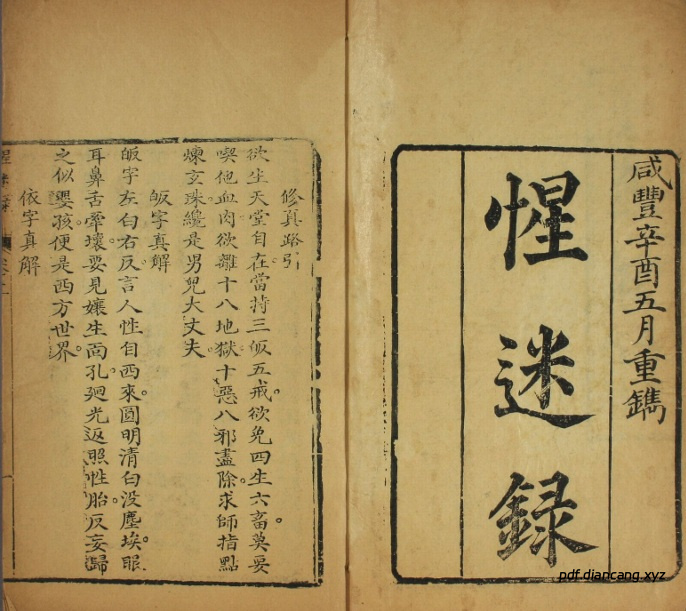 咸豐辛酉五月重鐫
惺迷録
修真路引
欲生天堂自在當持三皈五戒欲免四生六畜莫要
喫他血肉欲離十八地獄十惡八邪盡除求師指點
煉玄珠纔是男兒大丈夫
皈字真解
皈字左白右反言人性自西來圓明清白没塵埃眼
耳鼻舌牽壞要見孃生面孔廻光返照性胎反妄歸
之似嬰孩便是西方世界
依字真解
pdf.diancang.xyz